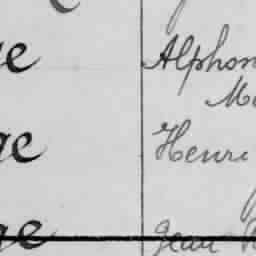 ge Alphon
Ma
ge Henri
ge Jean